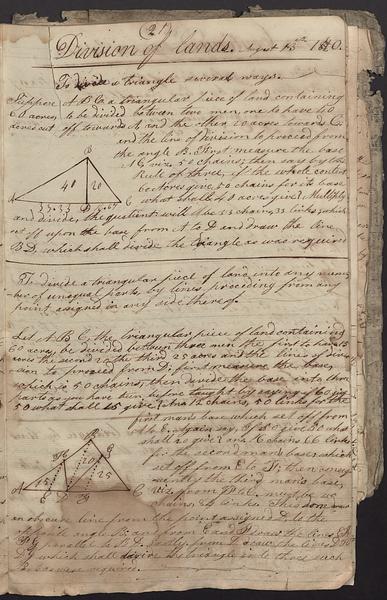 (21)
Division of lands. August 13th 1810.
To divide a triangle several ways.
Suppose A B C a triangular piece of land containing
60 acres, to be divided between two men, one to have 40
acres cut off towards A and the other 20 acres towards C
and the line of division to proceed from
the angle B. First measure the base
A C viz. 50 chains; then say by the
Rule of three, if the whole content
60 acres give 50 chains for its base
what shall 40 acres give. Multiply
B
40
20
A
D
C
and divide, the quotient will be 33 chains, 33 links; which
set off upon the base from A to D and draw the line
B D, which shall divide the triangle as was required
To divide a triangular piece of land into any num
ber of unequal parts, by lines proceeding from any
point assigned in any side thereof.
Let A B C, the triangular piece of land containing
60 acres, be divided between three men the first to have 15
acres the second 20 the third 25 acres and the lines of divi
sion to proceed from D; first measure the base
which is 50 chains, then divide the base into three
parts as you have been before taught by say if 60 give
50 what shall 15 give. Ans 12 chains, 50 links for the
first mans base which set off from
A to E. Again say, if 60 give 50 what
shall 20 give Ans. 16 chains 66 links
for the second mans base which
set off from E to F; then conse
quently the third mans base
viz. from F to C must be 20
chains 84 links. This done draw
B
G
15
20
25
A
E
D
F
C
an obscure line from the point assigned D to the
opposite angle B and from E and F draw the lines E H
F G parallel to B D. Lastly from D draw the lines D H
D G which shall divide the triangle into three such
parts as was required.